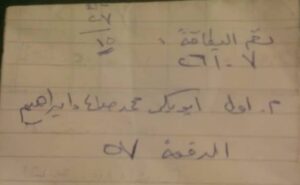 ٢٧
١٥
رقم البطاقة :
٢٦١٠٧
م. اول ابوبكر محمد صلاح دابراهيم
الدفعة ٥٧